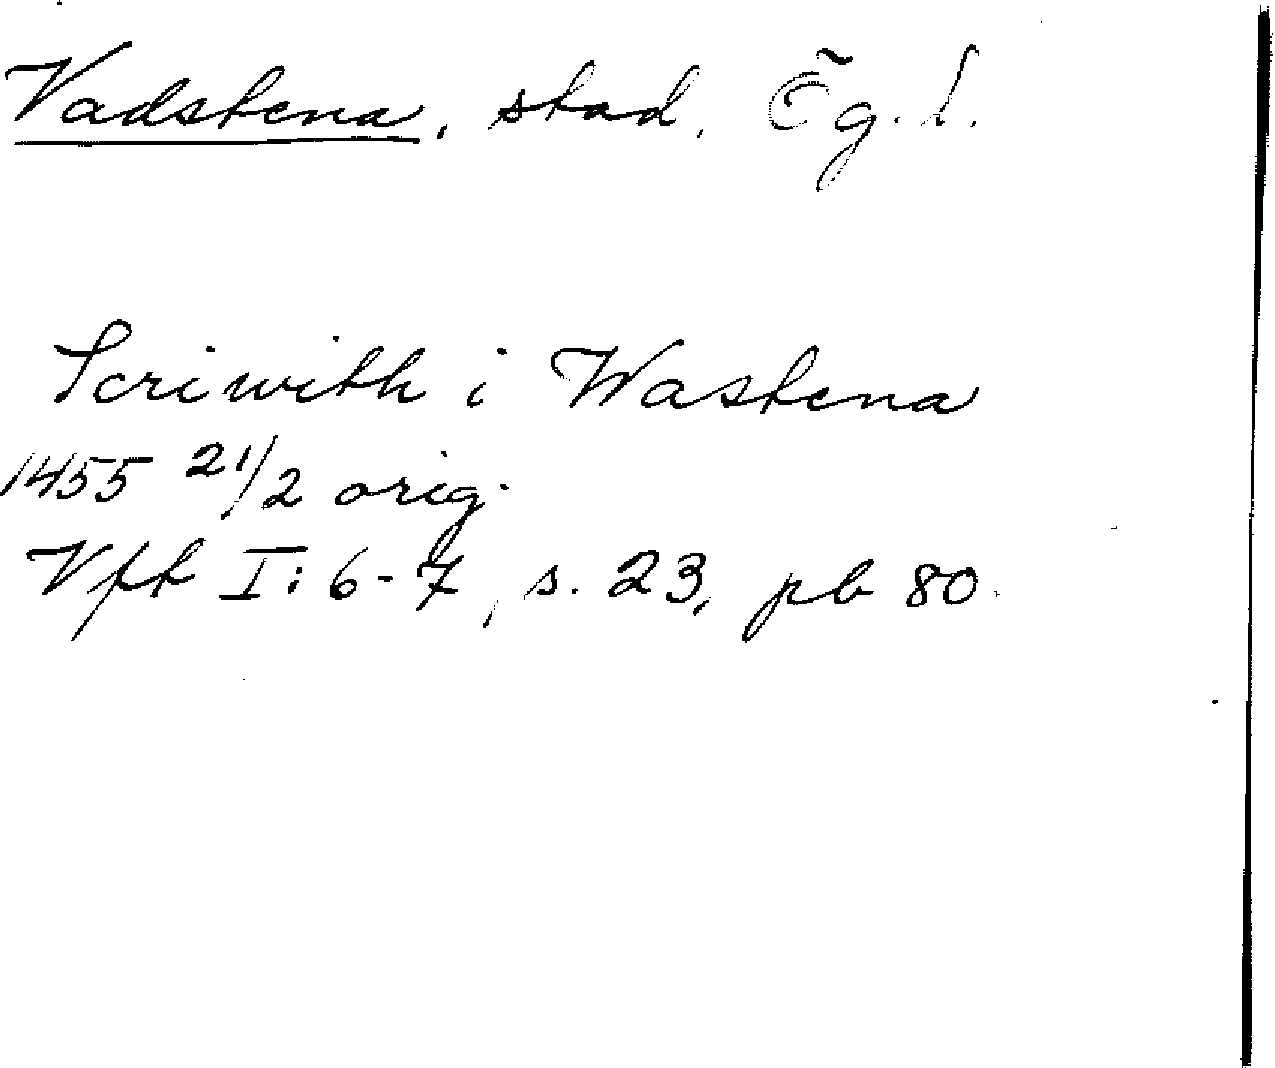 Vadstena, stad, Ög. l.
Scriwith i Wastena
1455 21/2 orig.
Vpf I: 6-7, s. 23, pb 80.